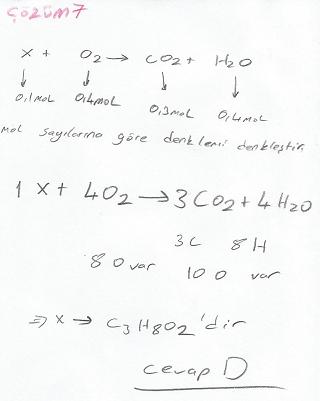 ÇÖZÜM7
X + O2 → CO2 + H2O
0,1mol 0,4mol 0,3mol 0,4mol
mol sayılarına göre denklemi denkleştir.
1 X + 4O2 → 3CO2 + 4H2O
3C 8H
8 O var 10 O var
⇒ X → C3H8O2'dir
cevap D